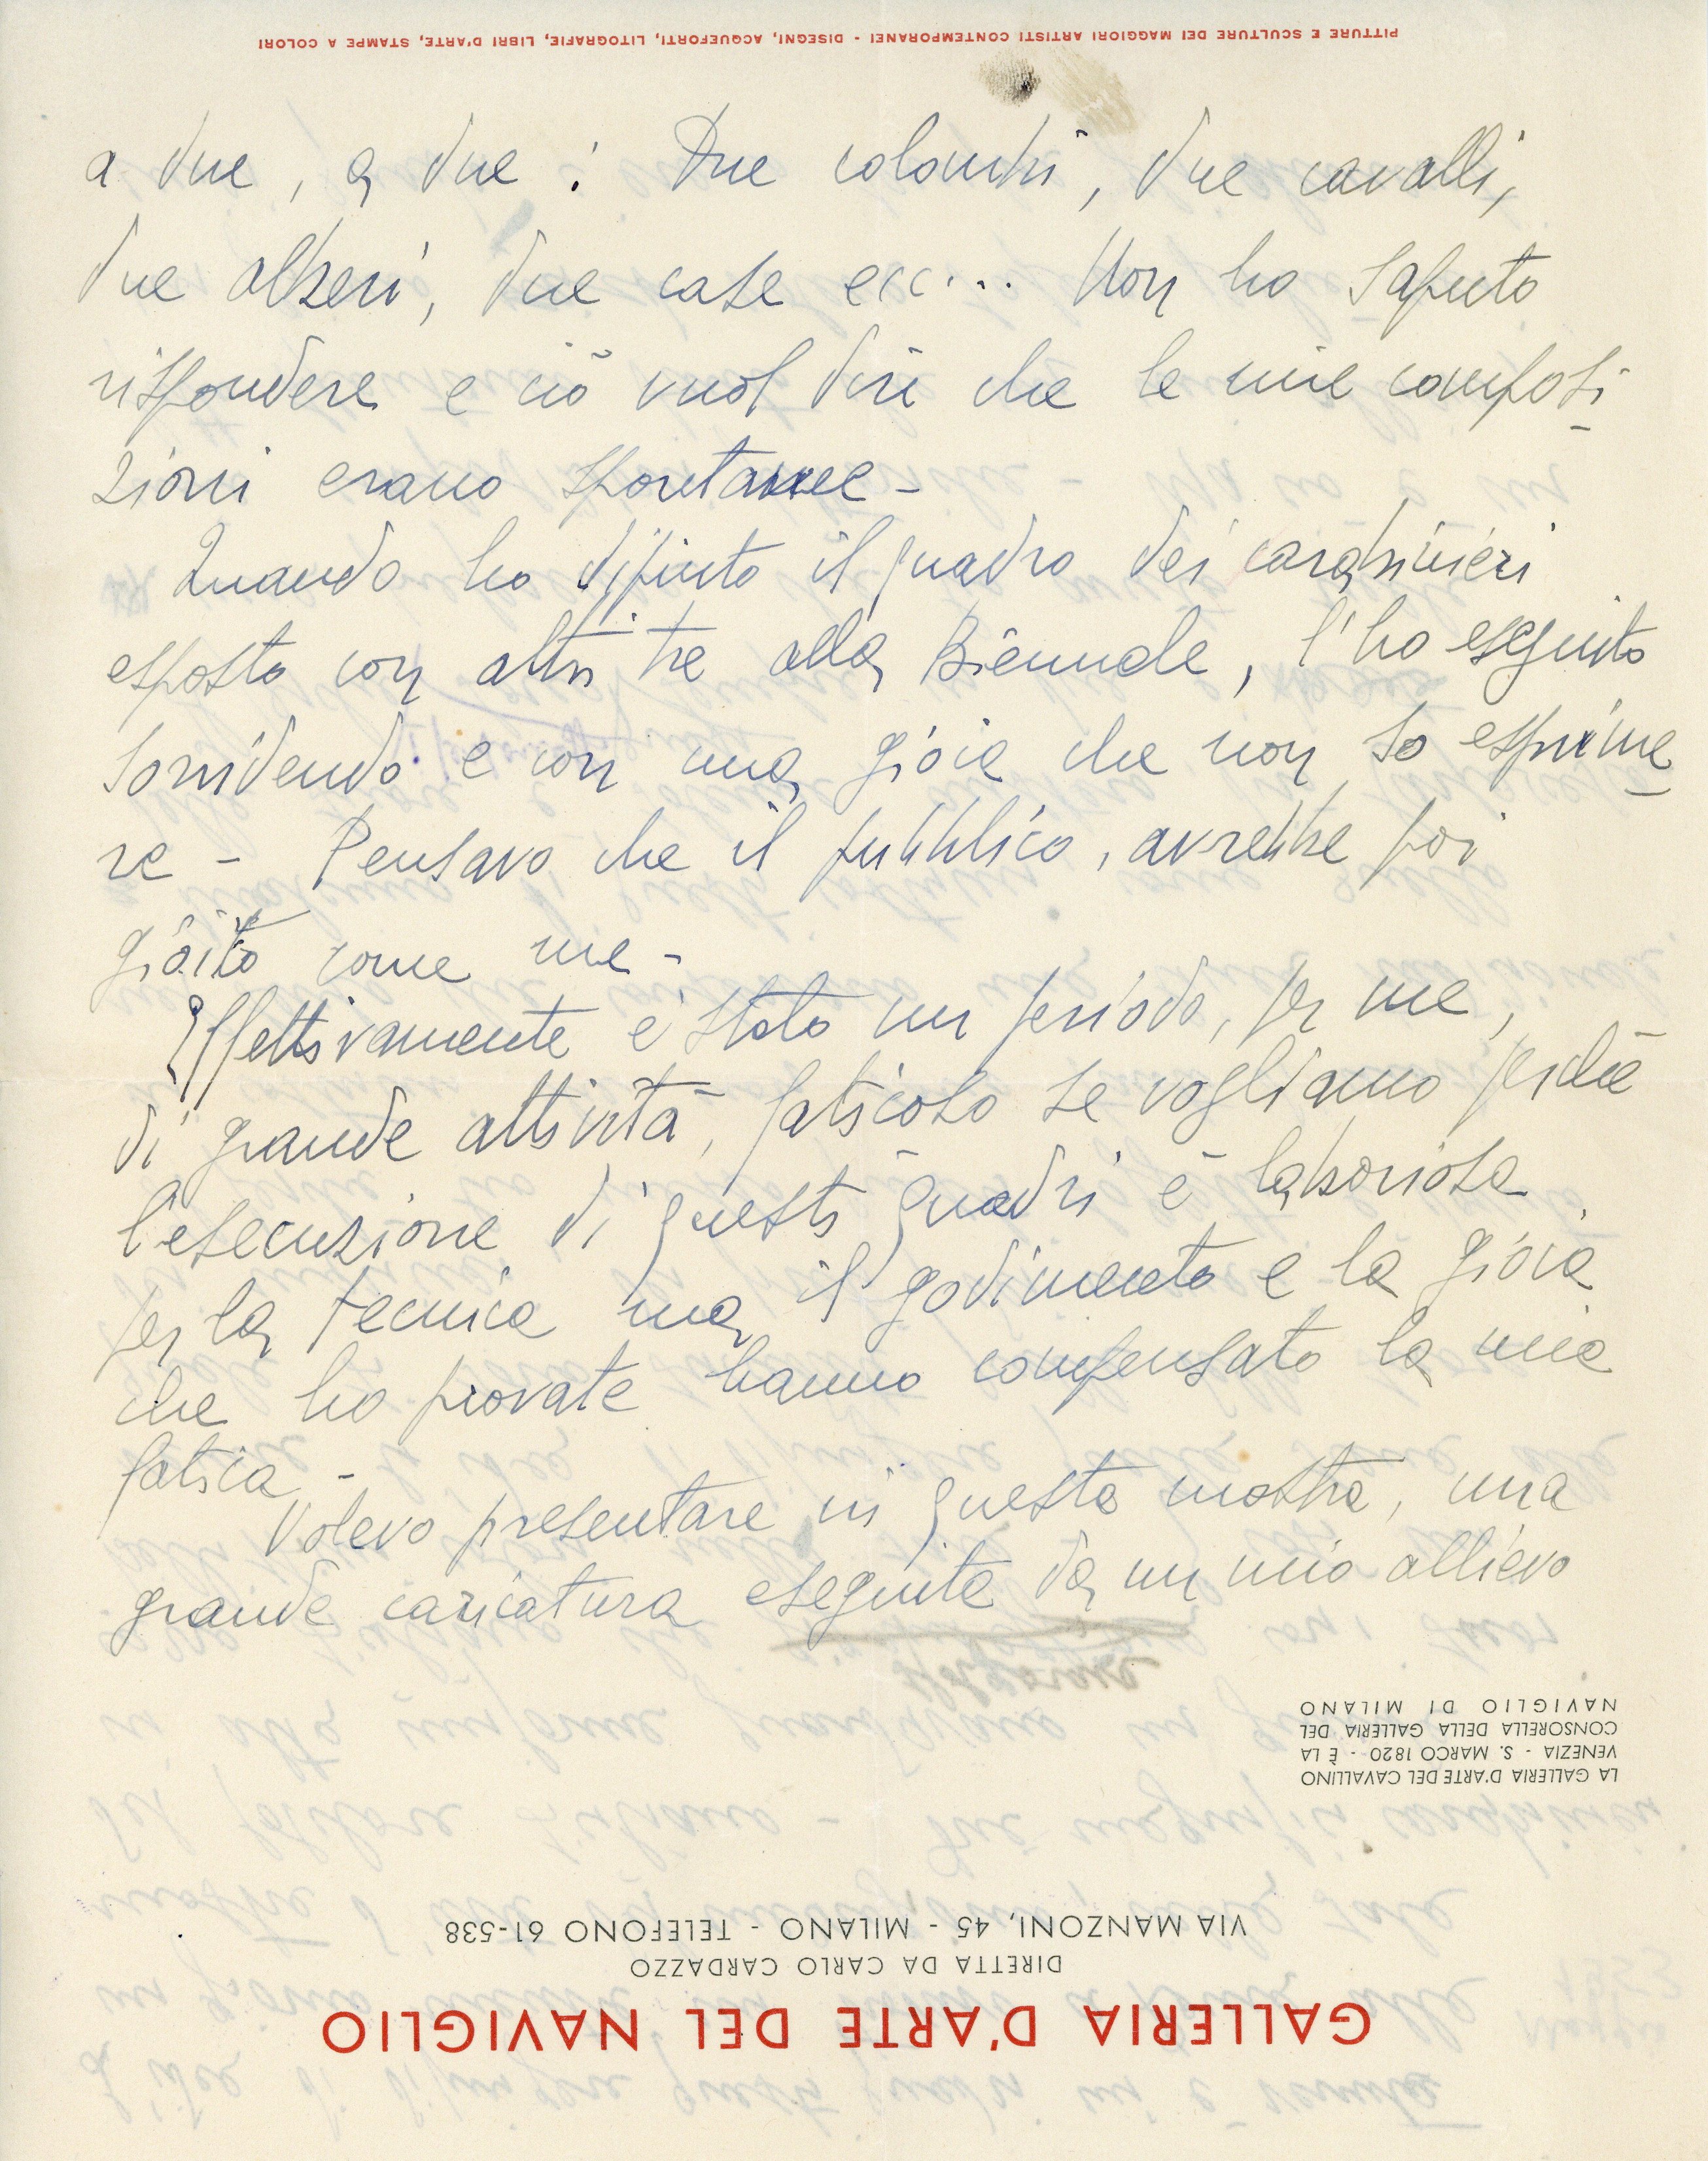 a due, a due: Due colombi, due cavalli,
due alberi, due case ecc... Non ho saputo
rispondere e ciò vuol dire che le mie composi
zioni erano spontanee -
Quando ho dipinto il quadro dei carabinieri
esposto con altri tre alla Biennale, l'ho eseguito
sorridendo e con una gioia che non so esprime
re - Pensavo che il pubblico, avrebbe poi
gioito come me -
Effettivamente è stato un periodo, per me,
di grande attività, faticoso se vogliamo perchè
l'esecuzione di questi quadri è laboriosa
per la tecnica ma il godimento e la gioia
che ho provate hanno compensato la mia
fatica -
Volevo presentare in questa mostra, una
grande caricatura eseguita da un mio allievo
GALLERIA D'ARTE DEL NAVIGLIO
DIRETTA DA CARLO CARDAZZO
VIA MANZONI, 45 - MILANO - TELEFONO 61-538
LA GALLERIA D'ARTE DEL CAVALLINO
VENEZIA - S. MARCO 1820 - È LA
CONSORELLA DELLA GALLERIA DEL
NAVIGLIO DI MILANO
PITTURE E SCULTURE DEI MAGGIORI ARTISTI CONTEMPORANEI - DISEGNI, ACQUEFORTI, LITOGRAFIE, LIBRI D'ARTE, STAMPE A COLORI